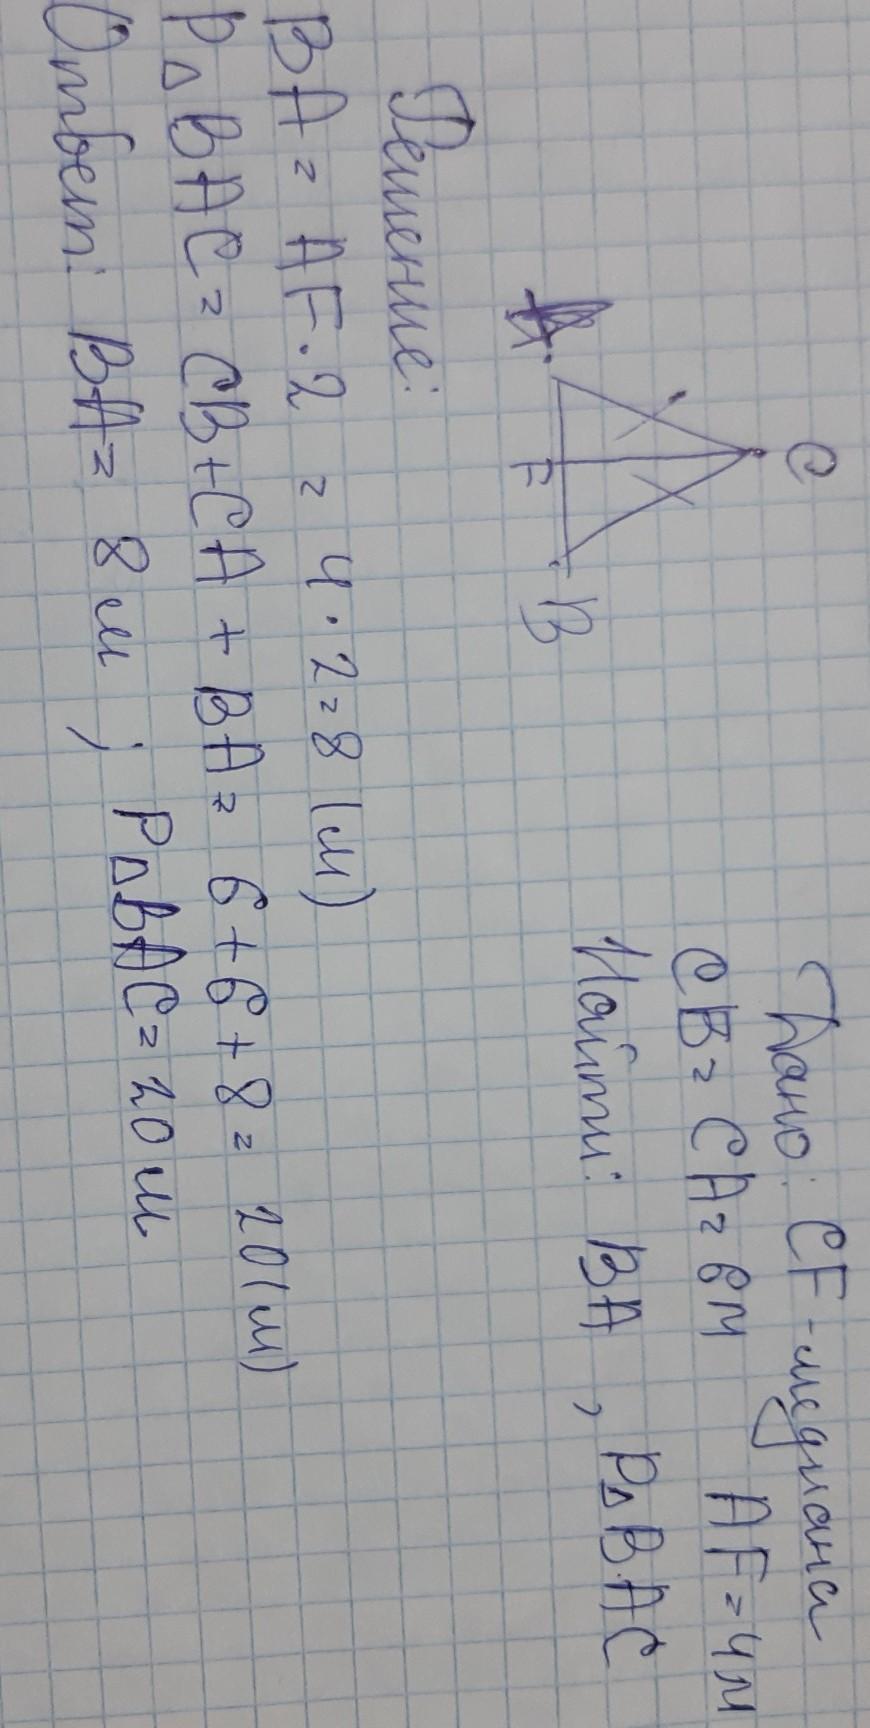 C
A
F
B
Дано: CF - медиана
CB = CA = 6м AF = 4м
Найти: BA, P△BAC
Решение:
BA = AF · 2 = 4 · 2 = 8 (м)
P△BAC = CB + CA + BA = 6 + 6 + 8 = 20 (м)
Ответ: BA = 8 м ; P△BAC = 20 м